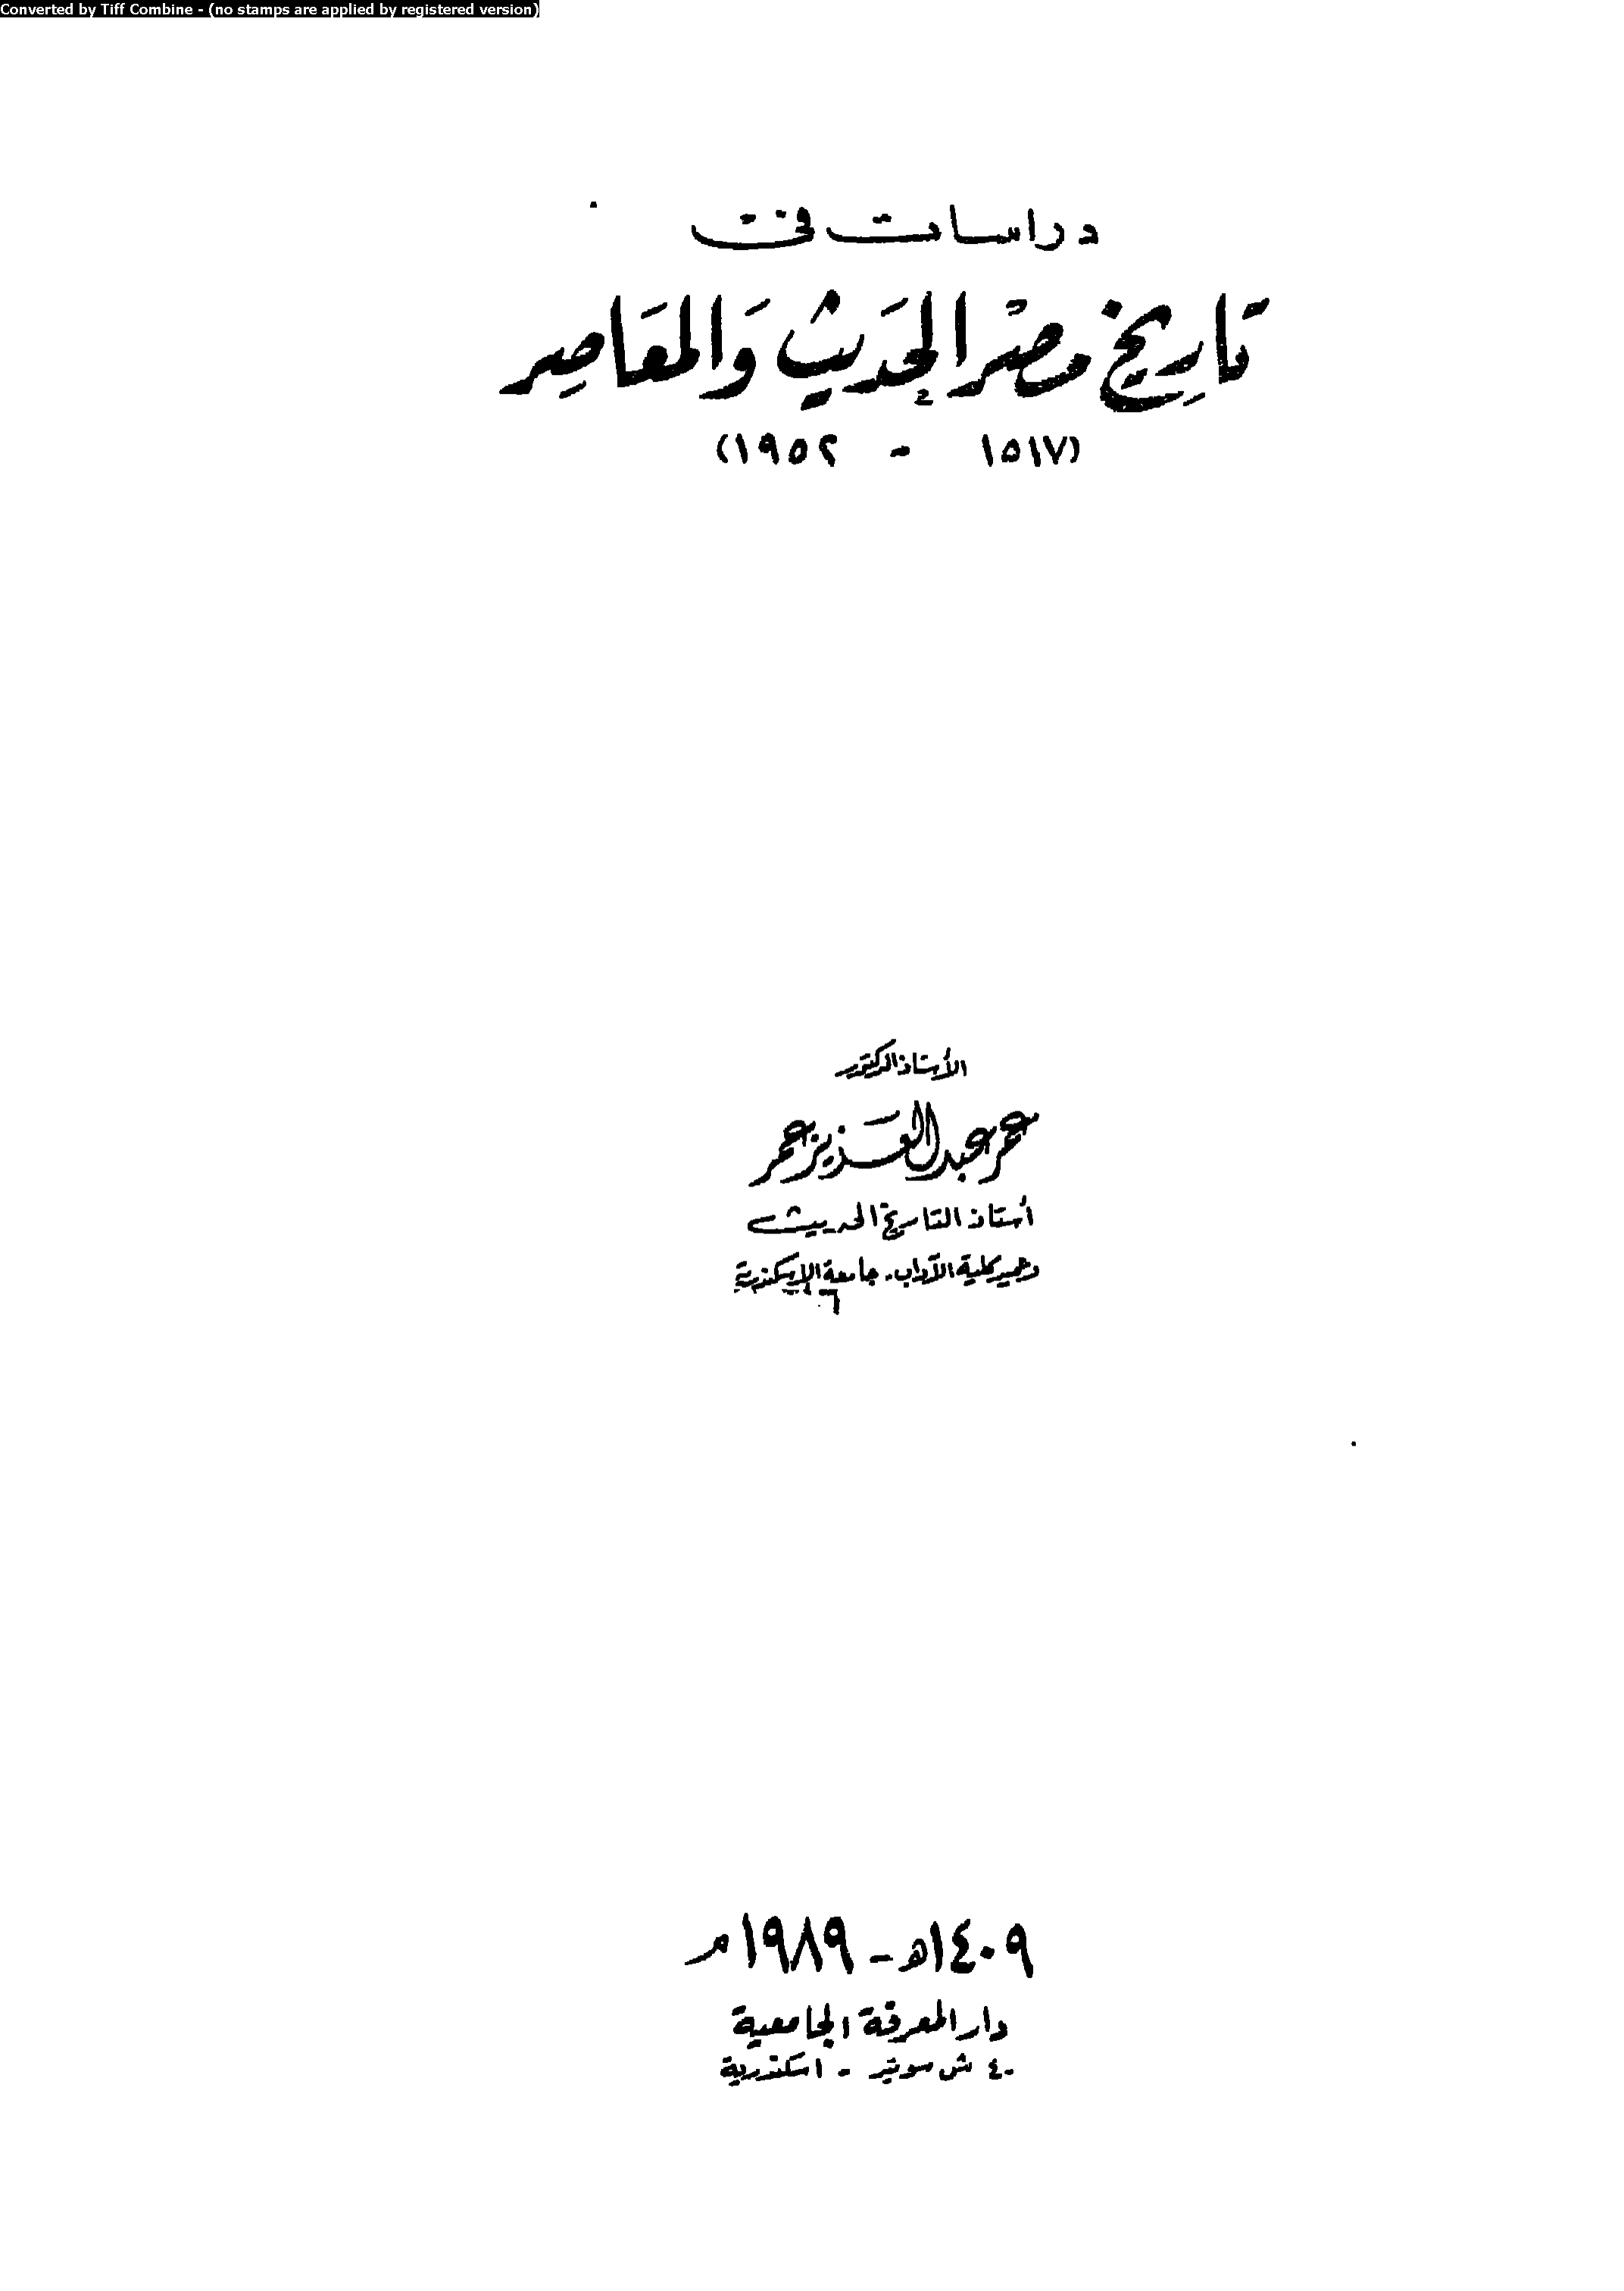 Converted by Tiff Combine - (no stamps are applied by registered version)
دراسات في
تاريخ مصر الحَديث وَالمعَاصِر
(١٥١٧ - ١٩٥٢)
الأستاذ الدكتور
عمر عبد العزيز عمر
أستاذ التاريخ الحديث
وعميد كلية الآداب - جامعة الإسكندرية
١٤٠٩هـ - ١٩٨٩م
دار المعرفة الجامعية
٤٠ ش سوتير - اسكندرية